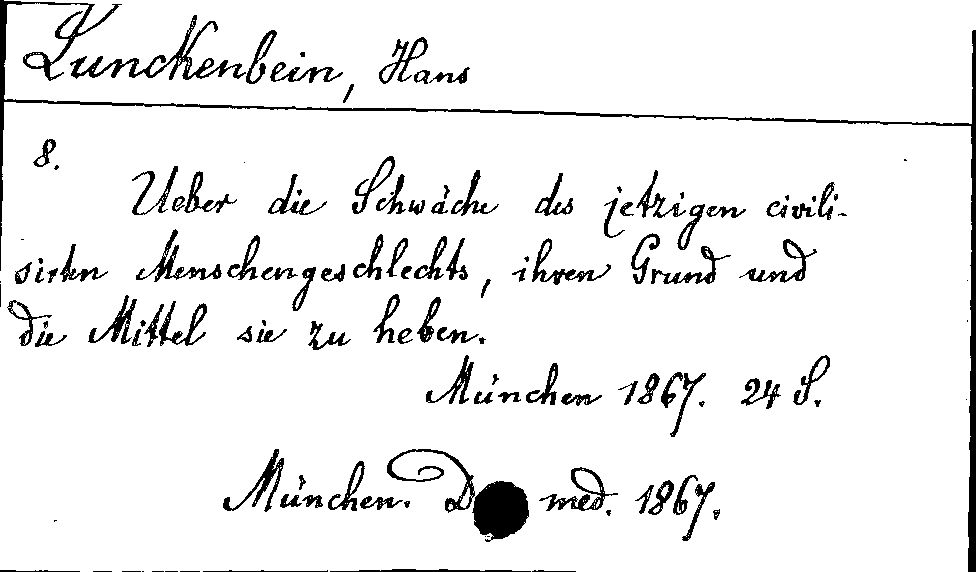 Lunckenbein, Hans
8.
Ueber die Schwäche des jetzigen civili-
sirten Menschengeschlechts, ihren Grund und
die Mittel sie zu heben.
München 1867. 24 S.
München. D med. 1867.